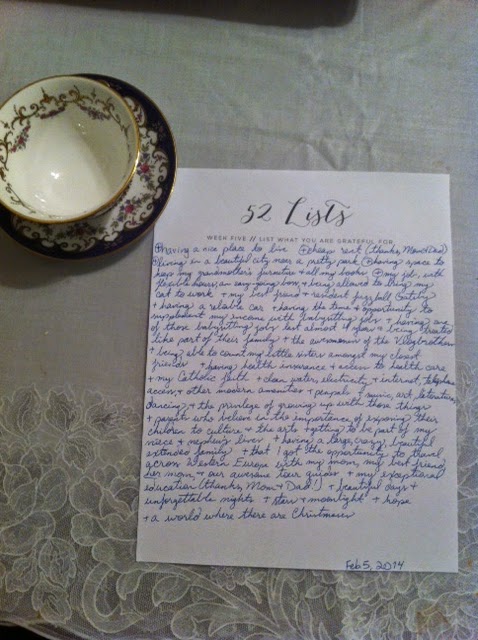 52 Lists
WEEK FIVE // LIST WHAT YOU ARE GRATEFUL FOR
+having a nice place to live +cheap rent (thanks, Mom & Dad)
+living in a beautiful city near a pretty park +having space to
keep my grandmother's furniture & all my books +my job, with
flexible hours, an easy-going boss, & being allowed to bring my
cat to work +my best friend & resident fuzzball, Gatsby
+having a reliable car +having the time & opportunity to
supplement my income with babysitting jobs +having one
of those babysitting jobs last almost a year & being treated
like part of their family +the awesomeness of the
+being able to count my little sisters amongst my closest
friends +having health insurance & access to health care
+my Catholic faith +clean water, electricity & internet, telephone
access & other modern amenities +penpals +music, art, literature,
dancing & the privilege of growing up with those things
+parents who believe in the importance of exposing their
children to culture & the arts +getting to be part of my
niece & nephew's lives +having a large, crazy, beautiful
extended family +that I got the opportunity to travel
across Western Europe with my mom, my best friend,
her mom, & our awesome tour guides +my exceptional
education (thanks, Mom & Dad!) +beautiful days &
unforgettable nights +stars & moonlight +hope
+a world where there are Christmases
Feb 5, 2014